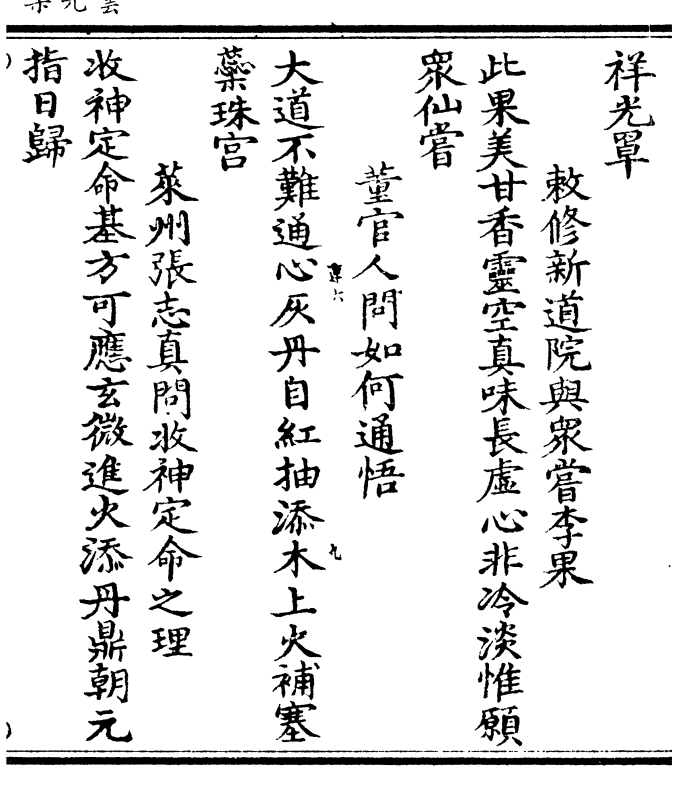 祥光罩
敕修新道院與衆嘗李果
此果美甘香靈空真味長虛心非冷淡惟願
衆仙嘗
董官人問如何通悟
大道不難通心灰丹自紅抽添木上火補塞
蘂珠宫
萊州張志真問收神定命之理
收神定命基方可應玄微進火添丹鼎朝元
指日歸